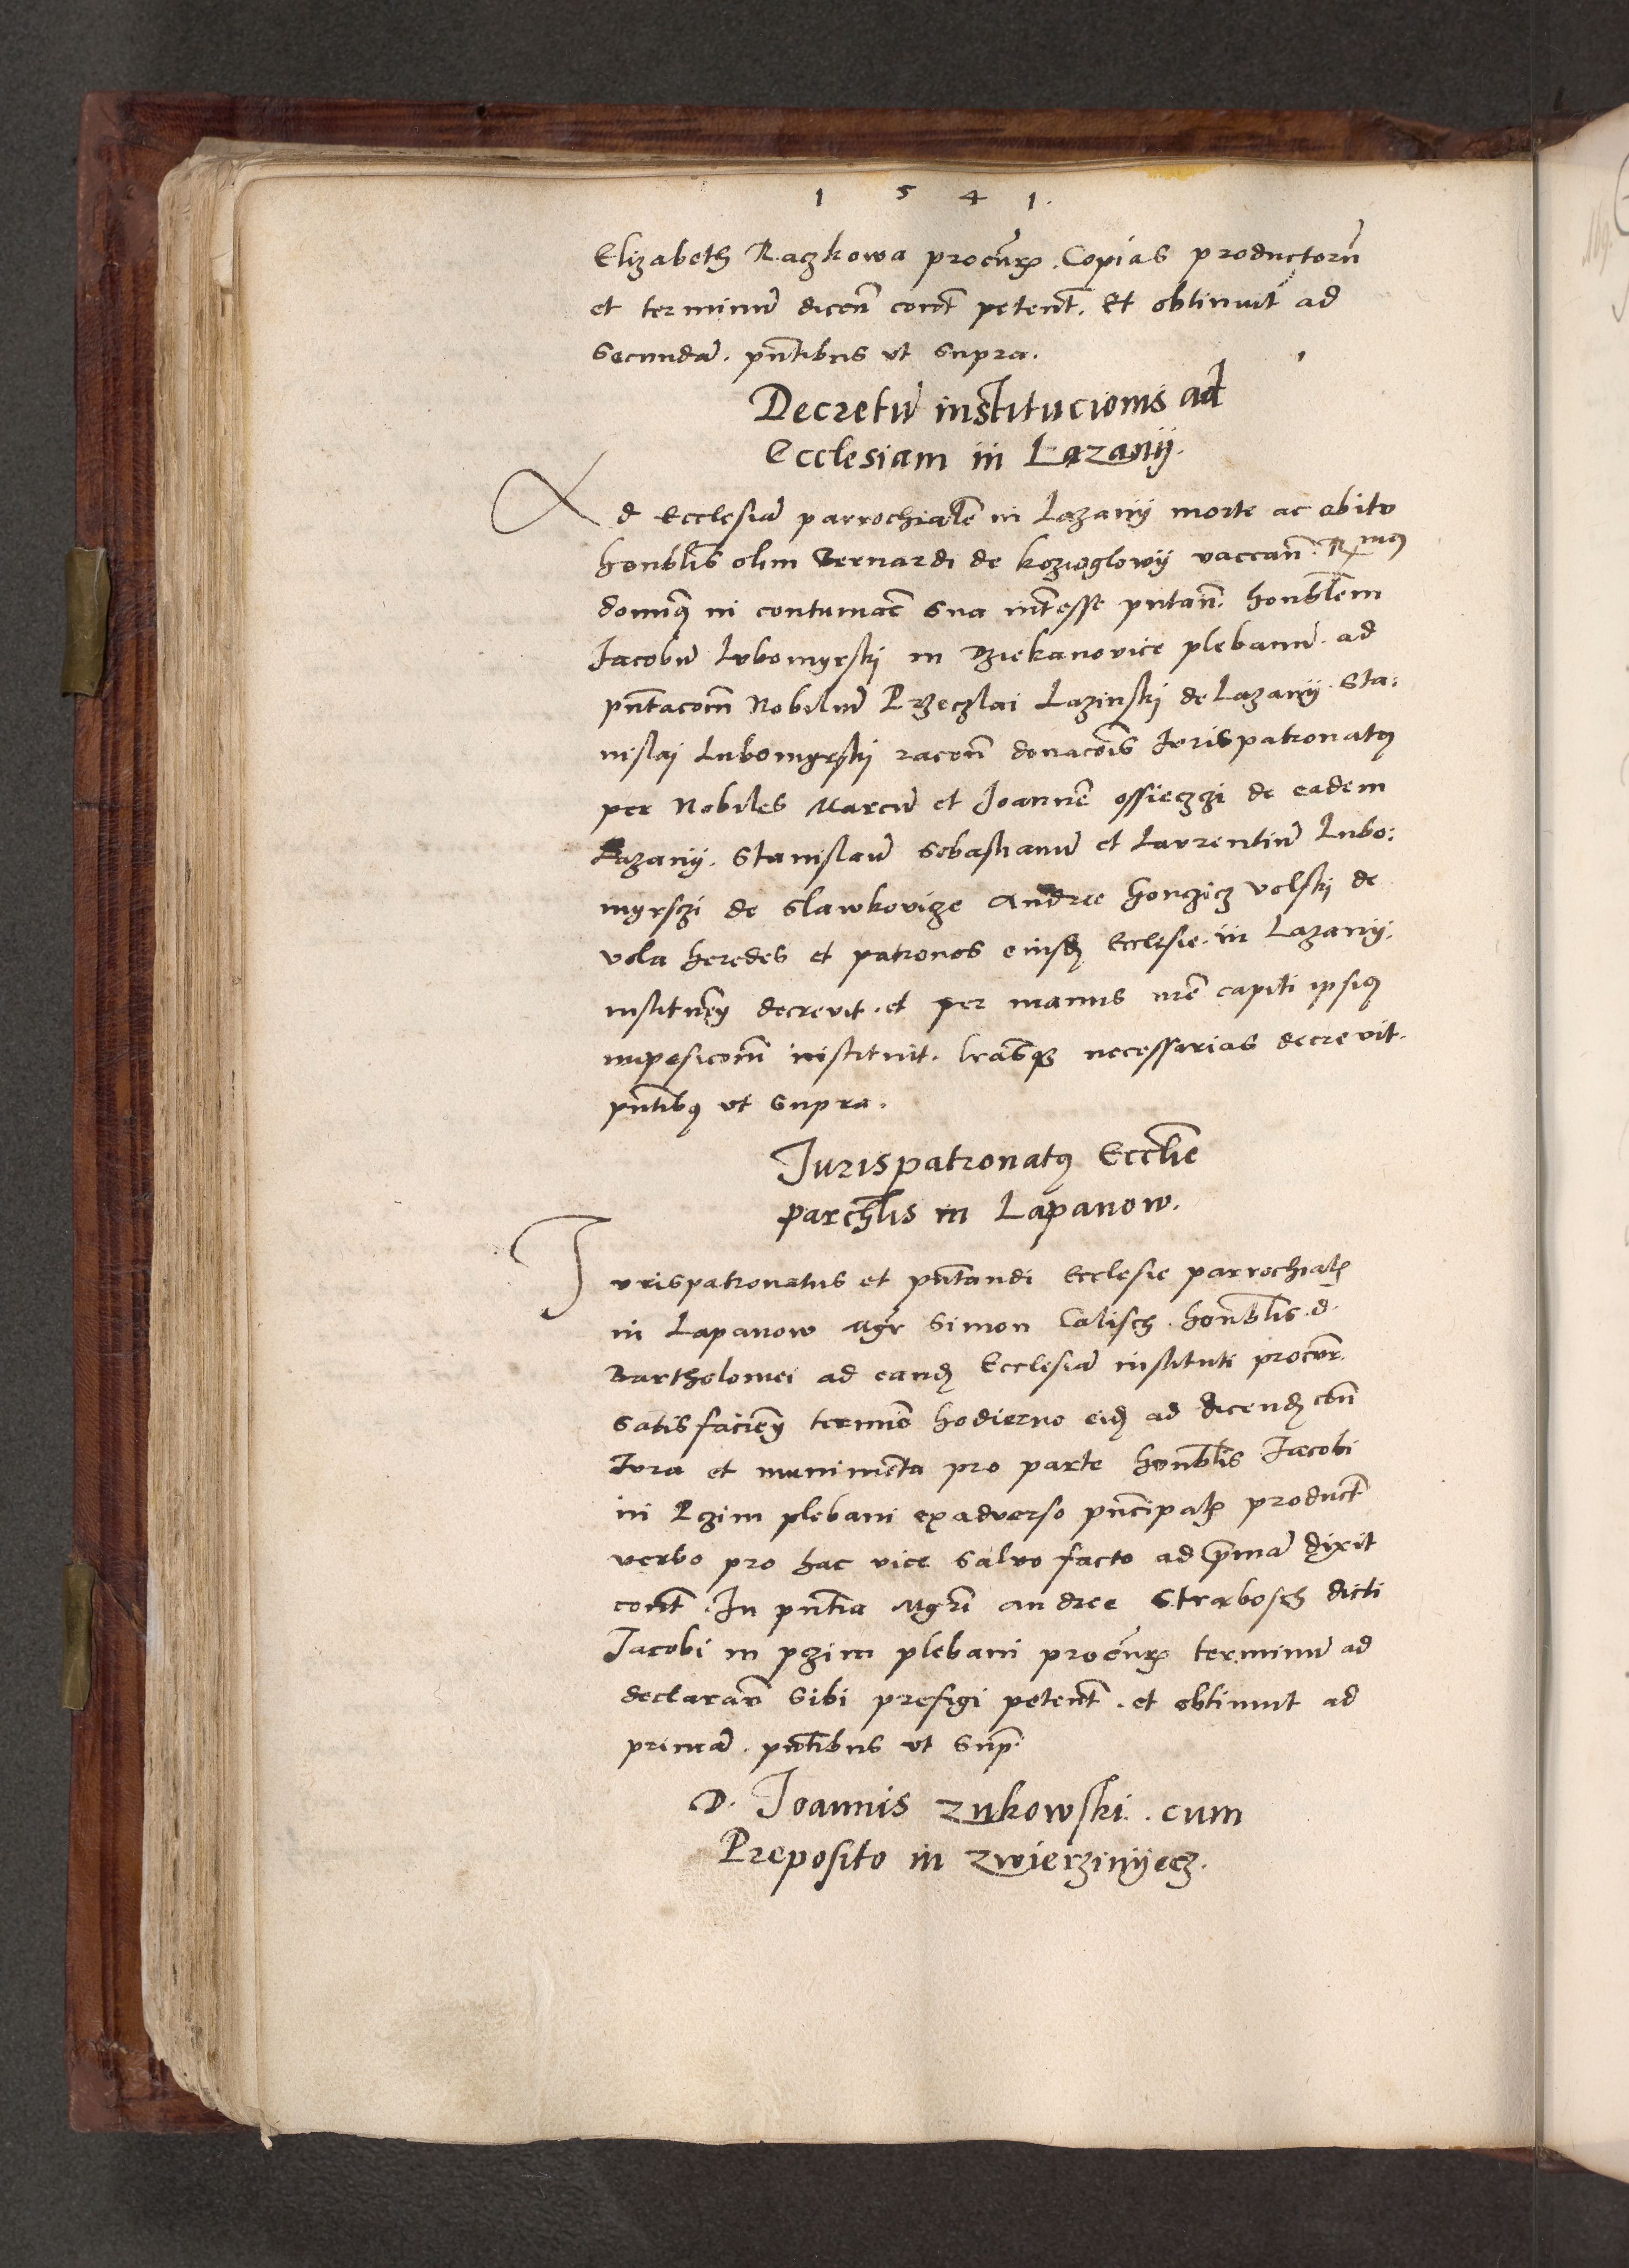 1 5 4 1.
Elizabeth Raczkowa procur̄. Copias productorū
et terminū dicen̄ cont̄ petent̄. Et obtinuit ad
secundā. pn̄tibus ut supra.
Decretū institucionis ad
Ecclesiam in Lazanÿ.
Ad Ecclesiā parrochialē in Lazanÿ morte ac obitu
honblis̄ olim Bernardi de kozioglowÿ vaccan̄. Rmus
domin9 in contumac̄ sua int̄esse putan̄. honblem̄
Jacobū Lubomyrskj in Dziekanovice plebanū. ad
pn̄tacom̄ Nobiliū Przeczlai Lazinskj de Lazanÿ. Sta:
nislaj Lubomyrskj racon̄ donacōis Jurispatronat9
per Nobiles Marcū et Joannē ossieczgi de eadem
Lazanÿ. Stanislaū Sebastianū et Laurentiū Lubo:
myrsgi de Slawkovige Andree Gongicz volski de
vola heredes et patronos eiusd̄ Ecclesie. in Lazanÿ.
instituen̄ decrevit. et per manus nrē capiti ipsi9
imposicom̄ instituit. lrāsq3 necessarias decrevit.
pn̄tib9 ut supra.
Jurispatronat9 Eccl̄ie
parchlis̄ in Lapanow.
Jurispatronatus et pn̄tandi Ecclesie parrochial̄
in Lapanow Mgr̄ Simon Calisch. honblis̄. d.
Bartholomei ad eand̄ Ecclesiā instituti procur̄.
satisfacien̄ termīo hodierno eid̄ ad dicend̄ con̄
Jura et munimēta pro parte honblis̄ Jacobi
in Pgim plebani exadverso pn̄cipal̄ product̄
verbo pro hac vice salvo facto ad p̄mā dixit
cont̄. In pn̄tia Mgr̄i andree Strabosch dicti
Jacobi in pgim plebani procur̄ terminū ad
declarar̄ sibi prefigi petent̄. et obtinuit ad
primā. pn̄tibus ut sup̄.
D. Joannis zukowski. cum
Preposito in zwierzinÿecz.